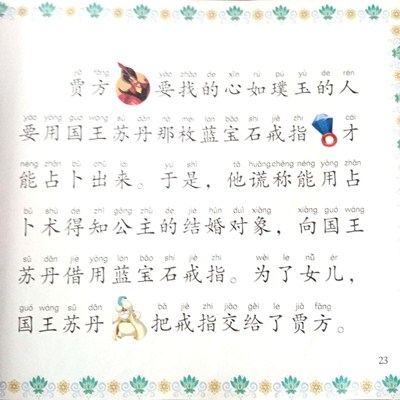 jiǎ fāng yào zhǎo de xīn rú pú yù de rén
贾方要找的心如璞玉的人
yào yòng guó wáng sū dān nà méi lán bǎo shí jiè zhi cái
要用国王苏丹那枚蓝宝石戒指才
néng zhān bǔ chū lái yú shì tā huǎng chēng néng yòng zhān
能占卜出来。于是，他谎称能用占
bǔ shù dé zhī gōng zhǔ de jié hūn duì xiàng xiàng guó wáng
卜术得知公主的结婚对象，向国王
sū dān jiè yòng lán bǎo shí jiè zhi wèi le nǚ ér
苏丹借用蓝宝石戒指。为了女儿，
guó wáng sū dān bǎ jiè zhi jiāo gěi le jiǎ fāng
国王苏丹把戒指交给了贾方。
23